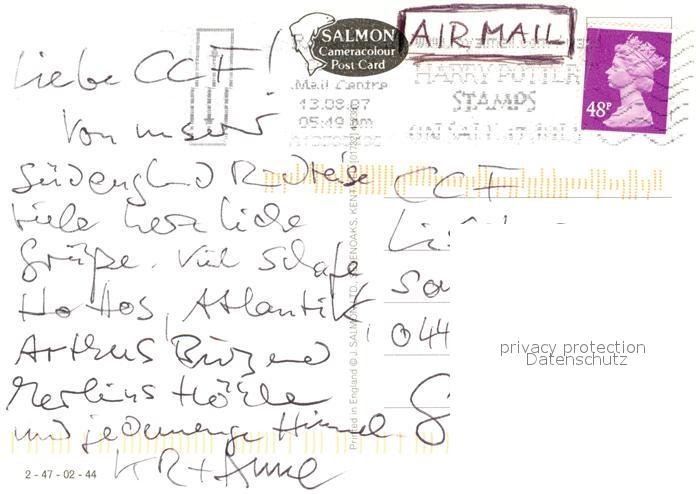 Liebe CCF!
Von unserer
Südengland Radreise
viele herzliche
Grüße. Viel Schafe
Hottos, Atlantik,
Arthus Burgen
Merlins Höhle
und jedemenge Himmel.
KR + Anne
SALMON
Cameracolour
Post Card
AIR MAIL
Mail Centre
13.08.07
05:49 am
HARRY POTTER
STAMPS
ON SALE 17 JULY
48P
CCF
044
privacy protection
Datenschutz
Printed in England © J. SALMON LTD., SEVENOAKS, KENT
2 - 47 - 02 - 44